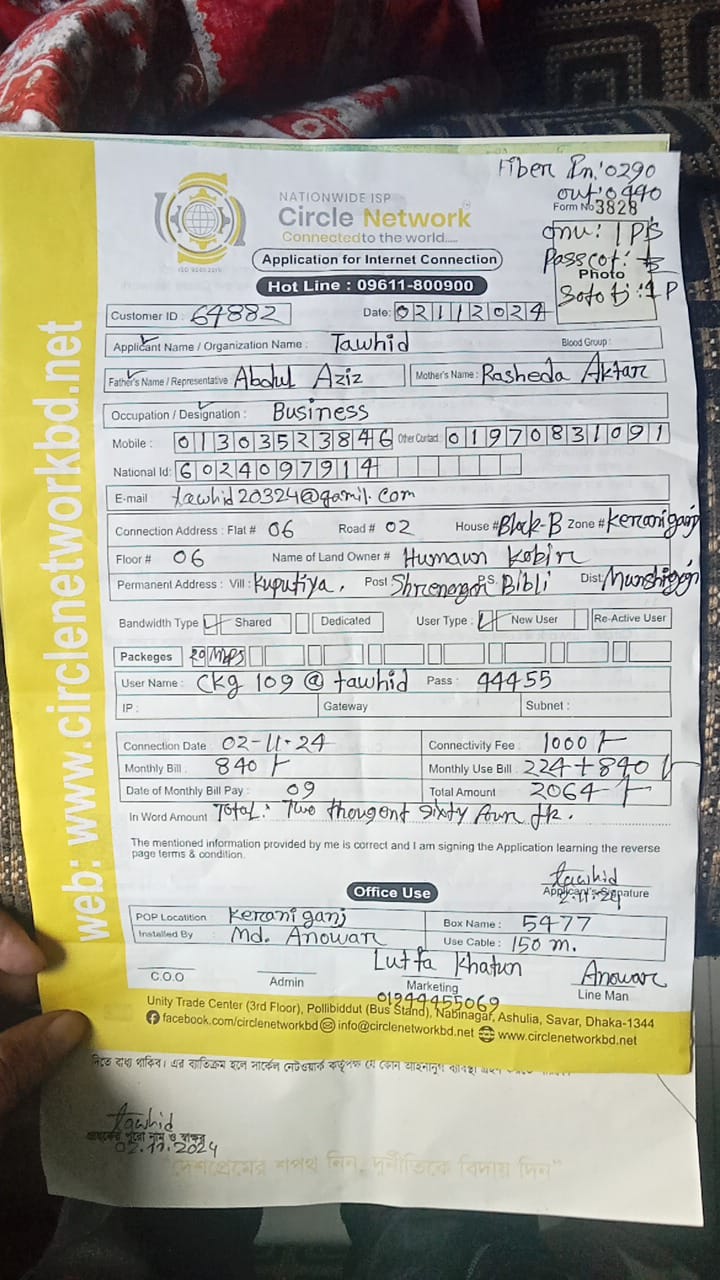 Fiber In:'0290
out:'0440
NATIONWIDE ISP
Circle Network
Connected to the world.....
ISO 9001:2015
Form No 3828
onu: 1 PIS
Photo
Application for Internet Connection
Hot Line : 09611-800900
Customer ID : 64882 Date: 02112024
Applicant Name / Organization Name : Tawhid Blood Group :
Father's Name / Representative Abdul Aziz Mother's Name : Rasheda Aktar
Occupation / Designation : Business
Mobile : 01303523846 Other Contact : 01970831091
National Id: 6024097914
E-mail tawhid20324@gamil.com
Connection Address : Flat # 06 Road # 02 House # Block-B Zone # Keraniganj
Floor # 06 Name of Land Owner # Humaun Kobir
Permanent Address : Vill : Kuputiya, Post Shrenagar P.S. Bibli Dist: Munshiganj
Bandwidth Type Shared Dedicated User Type : New User Re-Active User
Packeges 20 Mbps
User Name : CKg 109 @ tawhid Pass : 44455
IP : Gateway Subnet :
Connection Date : 02-11-24 Connectivity Fee : 1000/-
Monthly Bill : 840/- Monthly Use Bill : 224+840/-
Date of Monthly Bill Pay : 09 Total Amount 2064/-
In Word Amount Total: Two thougent sixty four tk.
The mentioned information provided by me is correct and I am signing the Application learning the reverse
page terms & condition.
tawhid
2.11.24
Applicant's Signature
Office Use
POP Locatition Keraniganj Box Name : 5477
Installed By Md. Anowar Use Cable : 150 m.
Lutfa Khatun Anowar
C.O.O Admin Marketing Line Man
01944455069
Unity Trade Center (3rd Floor), Pollibiddut (Bus Stand), Nabinagar, Ashulia, Savar, Dhaka-1344
facebook.com/circlenetworkbd info@circlenetworkbd.net www.circlenetworkbd.net
web: www.circlenetworkbd.net
দিতে বাধ্য থাকিব। এর ব্যতিক্রম হলে সার্কেল নেটওয়ার্ক কর্তৃপক্ষ যে কোন আইনানুগ ব্যবস্থা
tawhid
গ্রাহকের পুরো নাম ও স্বাক্ষর
02.11.2024
“দেশপ্রেমের শপথ নিন, দুর্নীতিকে বিদায় দিন”